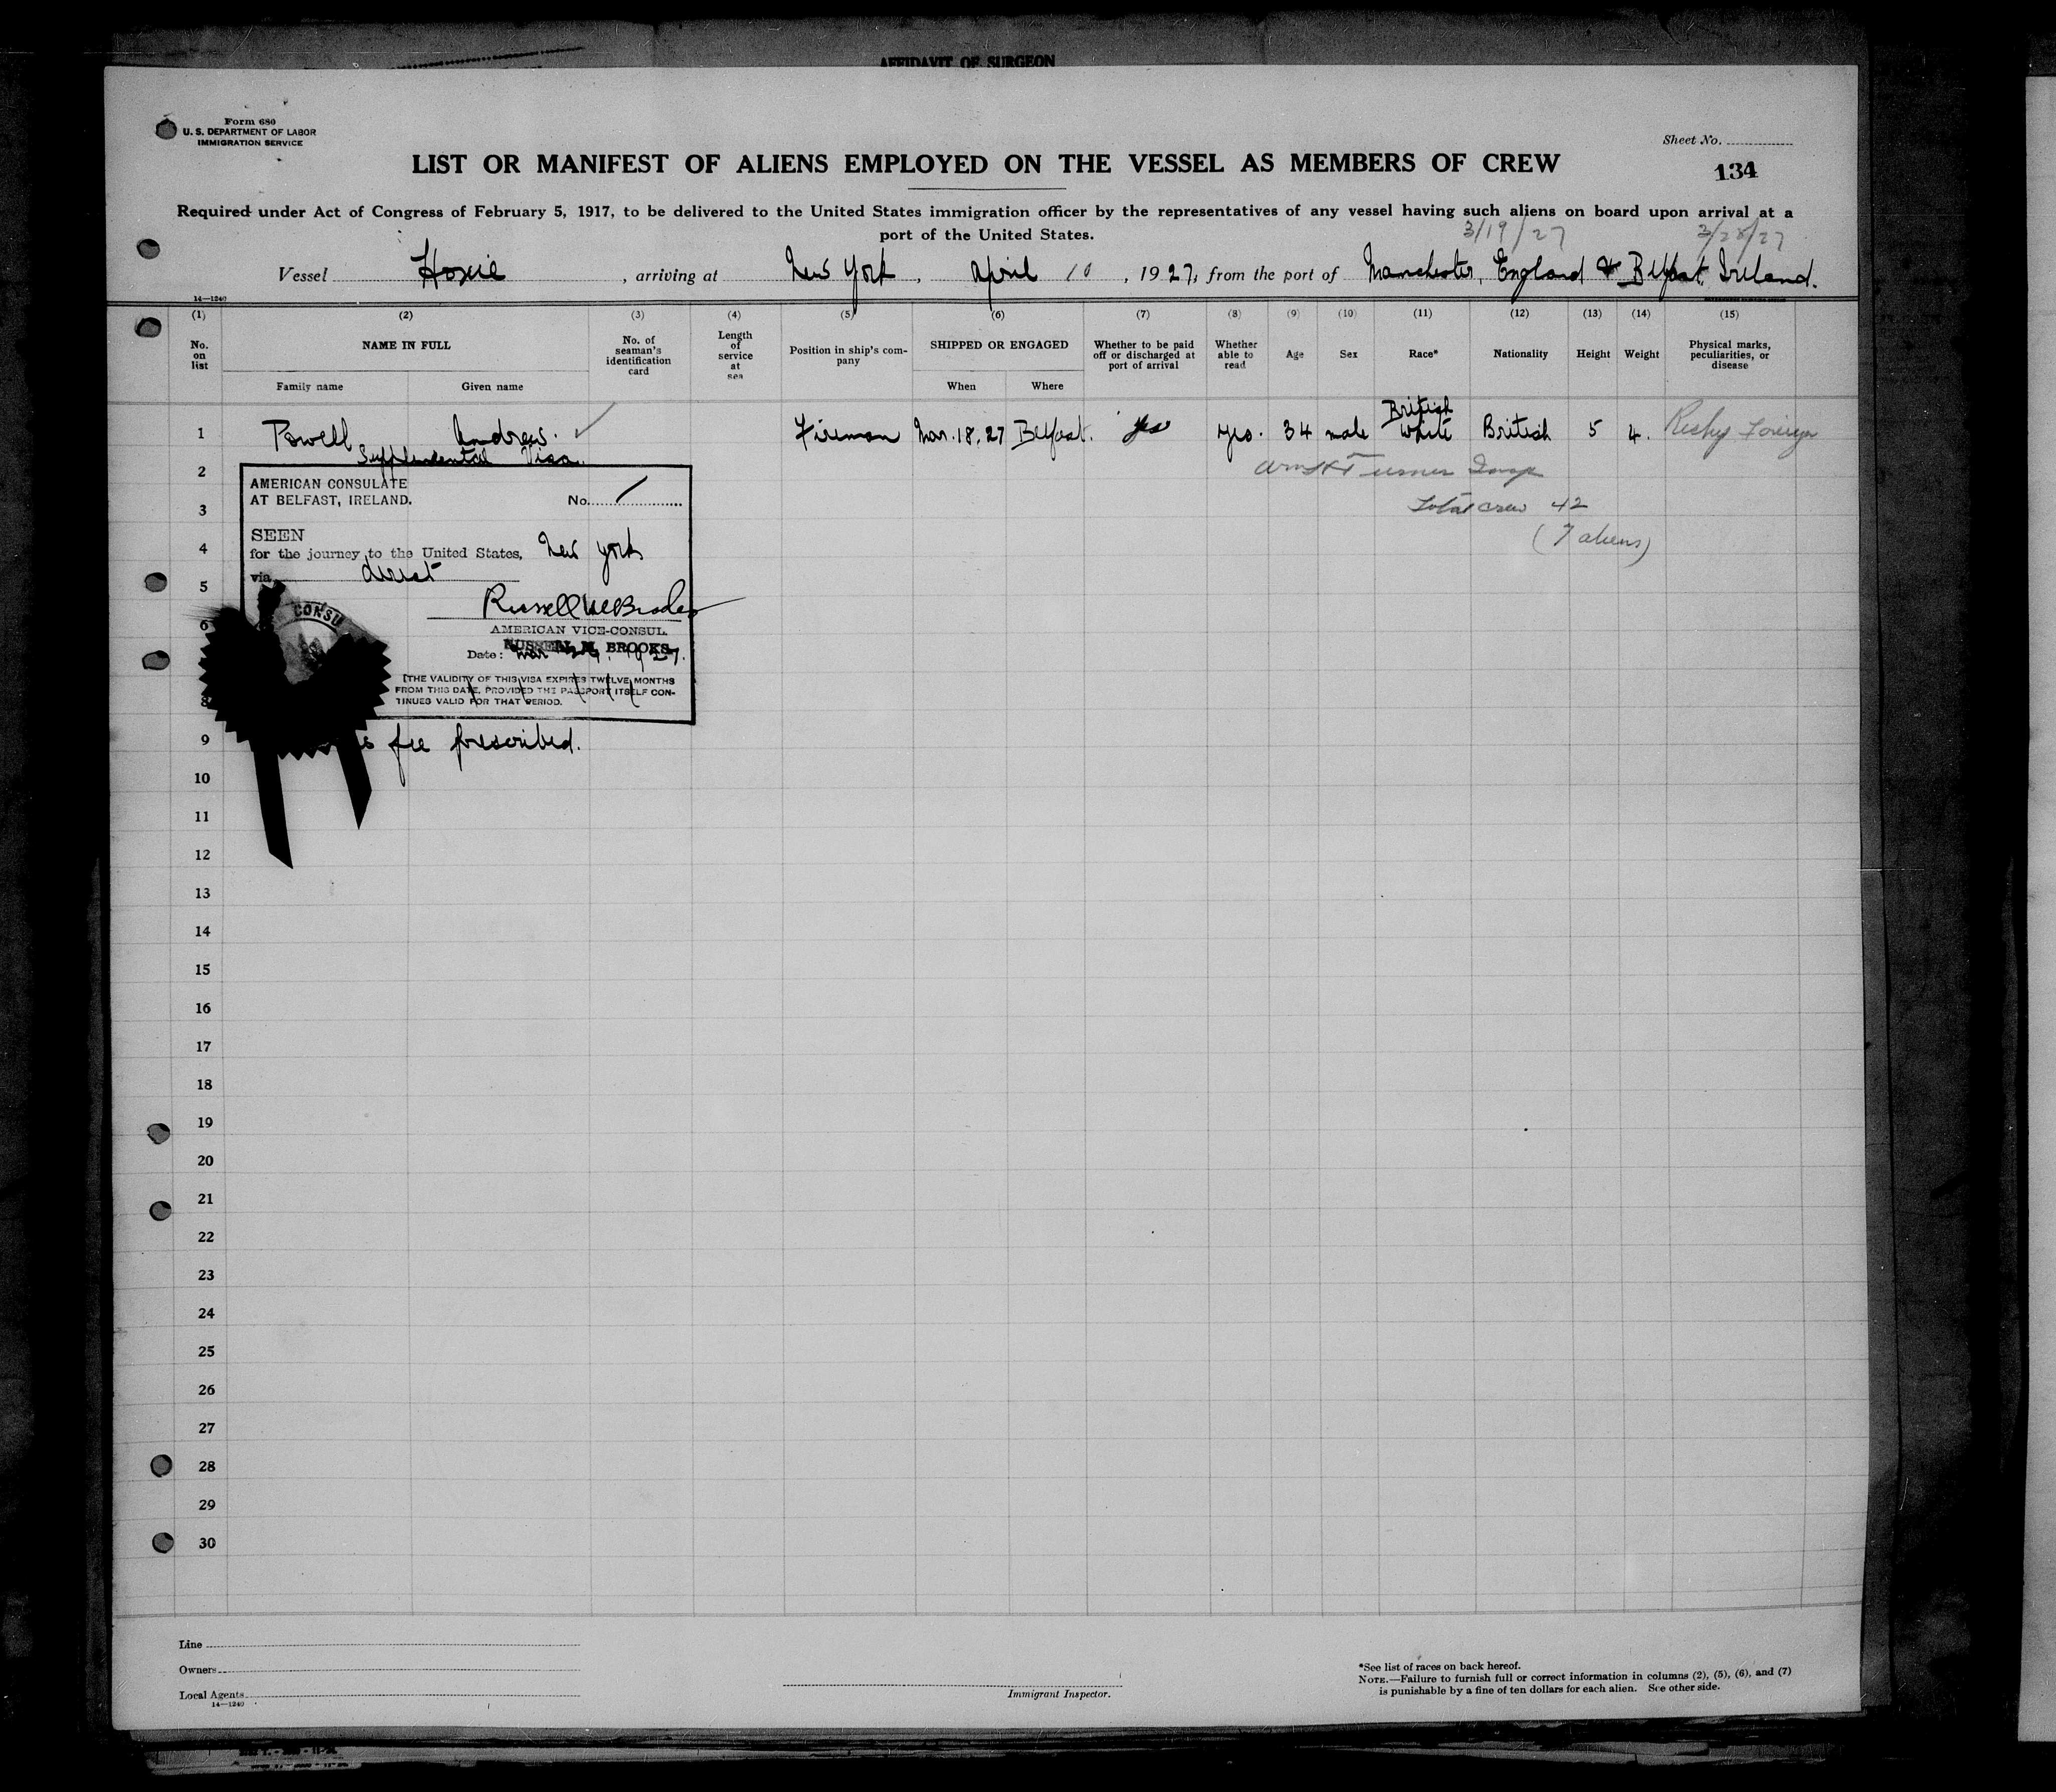 AFFIDAVIT OF SURGEON
Form 680
U. S. DEPARTMENT OF LABOR
IMMIGRATION SERVICE
Sheet No.
LIST OR MANIFEST OF ALIENS EMPLOYED ON THE VESSEL AS MEMBERS OF CREW
134
Required under Act of Congress of February 5, 1917, to be delivered to the United States immigration officer by the representatives of any vessel having such aliens on board upon arrival at a
port of the United States.
3/19/27 3/28/27
Vessel Hoxie, arriving at New York, April 10, 1927, from the port of Manchester, England & Belfast, Ireland.
14—1240
(1) (2) (3) (4) (5) (6) (7) (8) (9) (10) (11) (12) (13) (14) (15)
No. on list
NAME IN FULL
Family name Given name
No. of seaman's identification card
Length of service at sea
Position in ship's company
SHIPPED OR ENGAGED
When Where
Whether to be paid off or discharged at port of arrival
Whether able to read
Age
Sex
Race*
Nationality
Height
Weight
Physical marks, peculiarities, or disease
1 Powell Andrew. ✓ Fireman Mar. 18, 27 Belfast. yes yes. 34 male British White British 5 4.
Supplemental Visa.
2
AMERICAN CONSULATE
AT BELFAST, IRELAND. No. 1
3
Total crew 42
SEEN
4
for the journey to the United States, New York
(7 aliens)
via direct
5
6
CONSU
AMERICAN VICE-CONSUL.
BROOKS
Date: Mar 1927.
[THE VALIDITY OF THIS VISA EXPIRES TWELVE MONTHS
FROM THIS DATE, PROVIDED THE PASSPORT ITSELF CON-
TINUES VALID FOR THAT PERIOD.
8
9 fee prescribed.
10
11
12
13
14
15
16
17
18
19
20
21
22
23
24
25
26
27
28
29
30
Line
Owners
Local Agents
14—1240
Immigrant Inspector.
*See list of races on back hereof.
NOTE.—Failure to furnish full or correct information in columns (2), (5), (6), and (7)
is punishable by a fine of ten dollars for each alien. See other side.